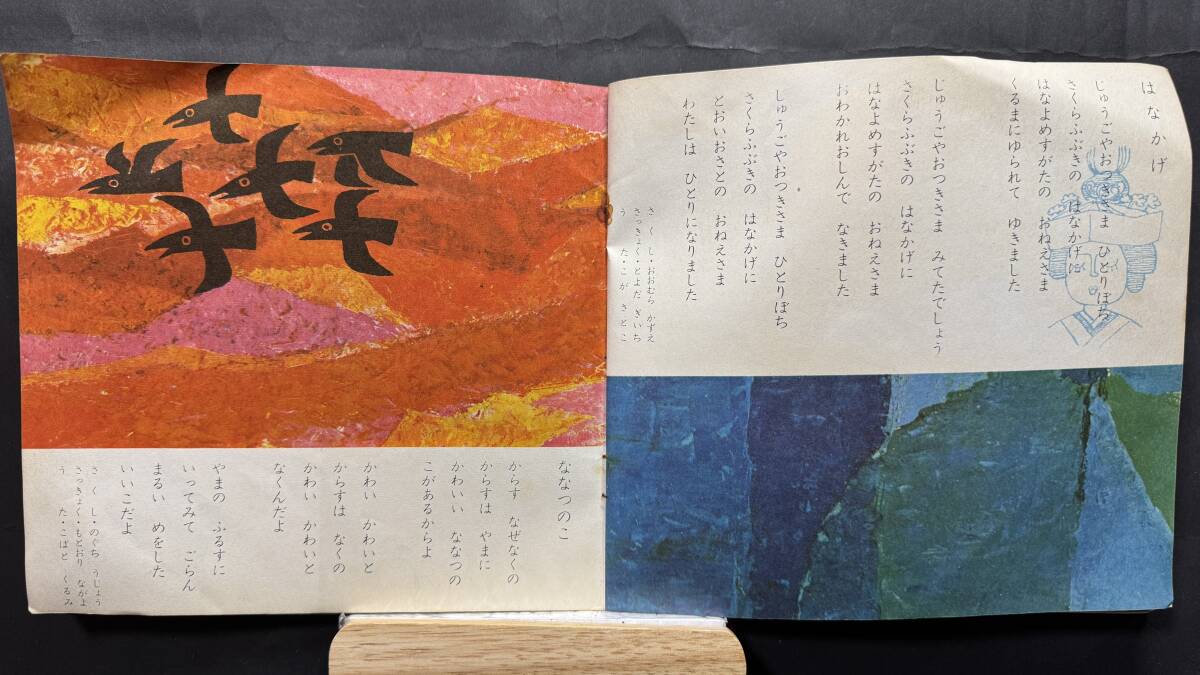 はなかげ
じゅうごやおつきさま　ひとりぼち
さくらふぶきの　はなかげに
はなよめすがたの　おねえさま
くるまにゆられて　ゆきました
じゅうごやおつきさま　みてたでしょう
さくらふぶきの　はなかげに
はなよめすがたの　おねえさま
おわかれおしんで　なきました
じゅうごやおつきさま　ひとりぼち
さくらふぶきの　はなかげに
とおいおさとの　おねえさま
わたしは　ひとりになりました
さくし・おおむら　かずえ
さっきょく・とよだ　ぎいち
うた・こが　さとこ
ななつのこ
からす　なぜなくの
からすは　やまに
かわいい　ななつの
こがあるからよ
かわい　かわいと
からすは　なくの
かわい　かわいと
なくんだよ
やまの　ふるすに
いってみて　ごらん
まるい　めをした
いいこだよ
さくし・のぐち　うじょう
さっきょく・もとおり　ながよ
うた・こばと　くるみ